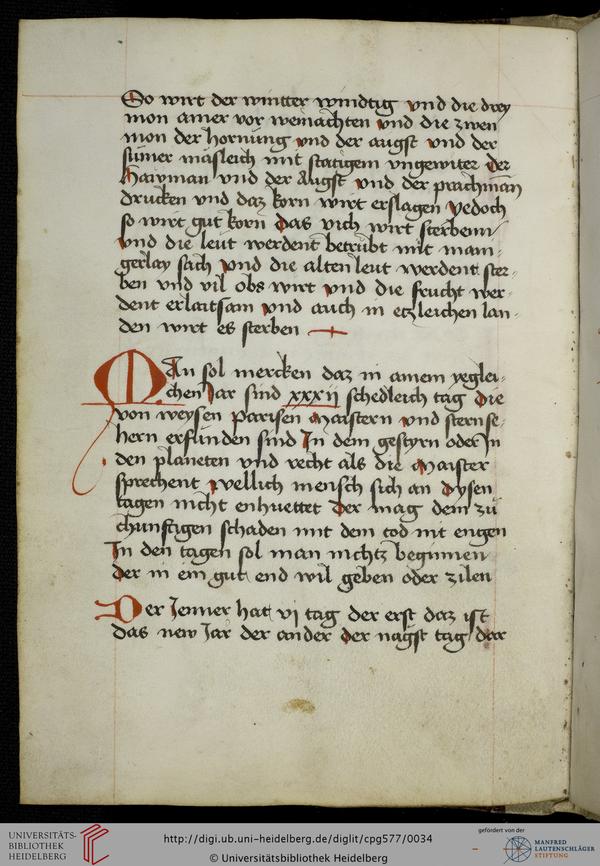 So wirt der wintter windtig vnd die drey
mon ainer vor weinachten vnd die zwen
mon der hornung vnd der augst vnd der
sumer masleich mit statigem vngewiter Der
Haryman vnd der Augst vnd der prachman
drucken vnd daz korn wirt erslagen yedoch
so wirt gut korn Das vich wirt sterbenn
vnd die leut werdent betrubt mit mani-
gerlay sach vnd die alten leut werdent ster-
ben vnd vil obs wirt vnd die frucht wer-
dent erlaitsam vnd auch in etzleichen lan-
den wirt es sterben
Man sol mercken daz in ainem yeglei-
chen Jar sind xxxij schedleich tag die
von weysen Parisen Maistern vnd sternse-
hern erfunden sind In dem gestyrn oder In
den planeten vnd recht als die Maister
sprechent wellich mensch sich an dysen
tagen nicht enhuettet Der mag dem zu
chunftigen schaden mit dem tod nit engen
In den tagen sol man nichtz beginnen
der in ein gut end wil geben oder zilen
Der Jenner hat vj tag der erst daz ist
das new Jar der ander der nagst tag dar
UNIVERSITÄTS-
BIBLIOTHEK
HEIDELBERG
http://digi.ub.uni-heidelberg.de/diglit/cpg577/0034
© Universitätsbibliothek Heidelberg
gefördert von der
MANFRED
LAUTENSCHLÄGER
STIFTUNG